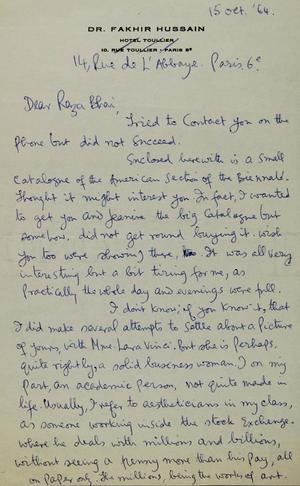 15 Oct. '64.
DR. FAKHIR HUSSAIN
HOTEL TOULLIER
10, RUE TOULLIER - PARIS 5e
14, Rue de L'Abbaye. Paris. 6e
Dear Raza Bhai,
Tried to contact you on the
phone but did not succeed.
Enclosed herewith is a small
catalogue of the American section of the Biennale.
Thought it might interest you. In fact, I wanted
to get you and Janine the big catalogue but
somehow, did not get round buying it. Wish
you too were showing there. It was all very
interesting but a bit tiring for me, as
practically the whole day and evenings were full.
I don't know, if you know it, that
I did make several attempts to settle about a picture
of yours, with Mme Lara Vinci. But she is perhaps,
quite rightly, a solid business woman. I on my
part, an academic person, not quite made in
life. Usually, I refer to aestheticians in my class,
as someone working inside the stock exchange.
where he deals with millions and billions,
without seeing a penny more than his pay, all
on paper only. The millions, being the works of art.